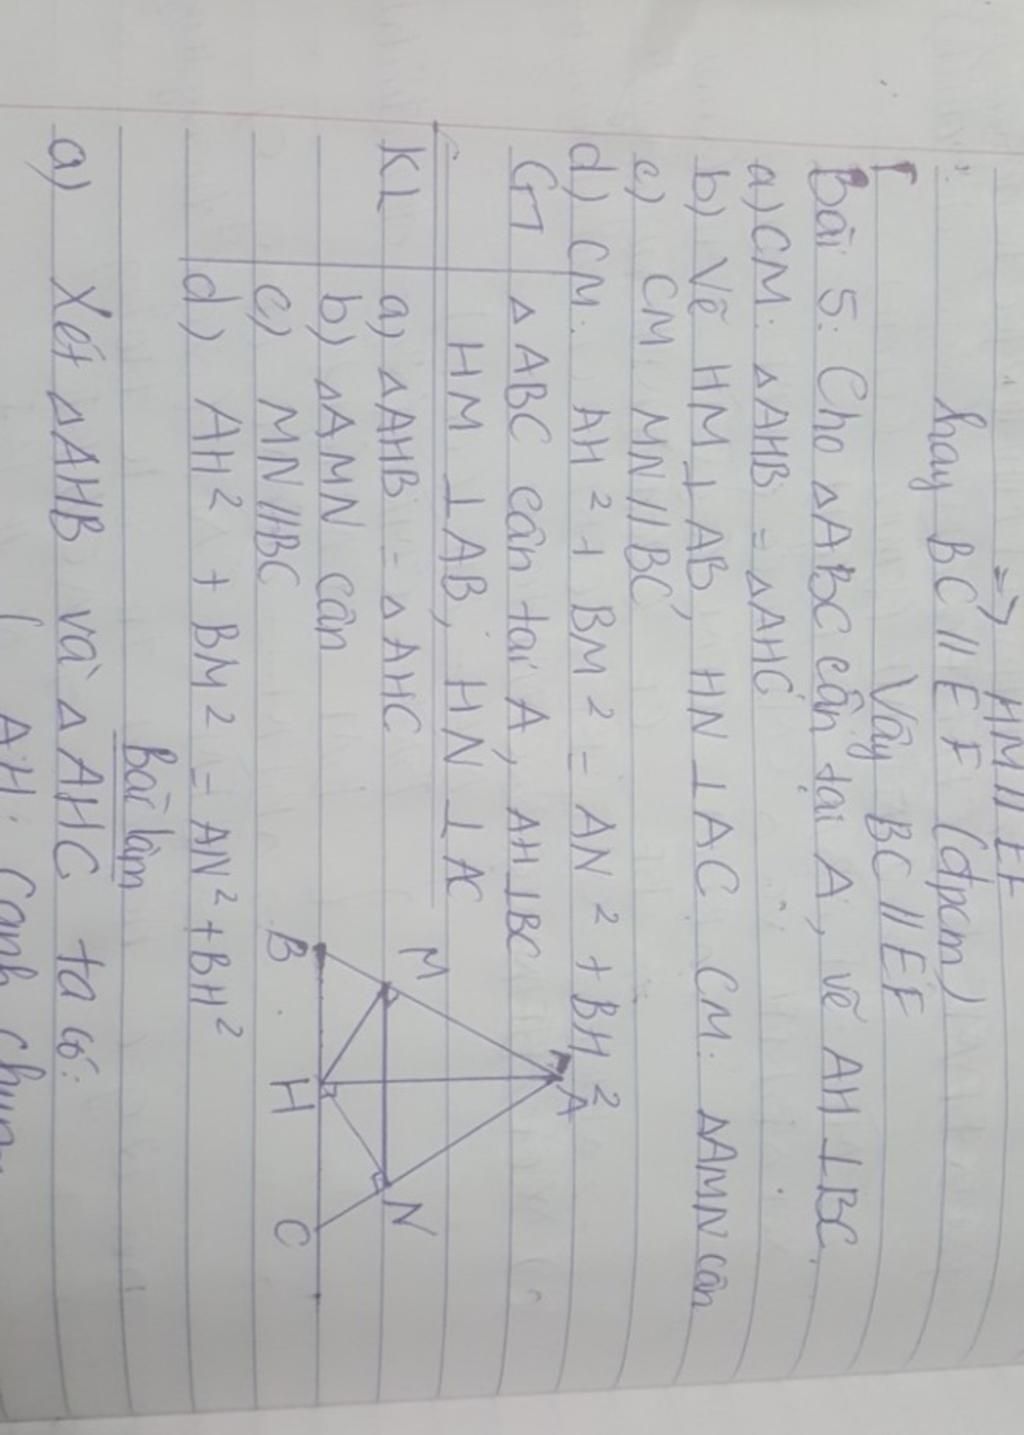 => HM // EF
hay BC // EF (đpcm)
Vậy BC // EF
Bài 5: Cho △ABC cân tại A, vẽ AH ⊥ BC.
a) CM: △AHB = △AHC
b) Vẽ HM ⊥ AB, HN ⊥ AC CM: △AMN cân
c) CM MN // BC
d) CM: AH² + BM² = AN² + BH²
GT △ABC cân tại A, AH ⊥ BC
HM ⊥ AB, HN ⊥ AC
KL a) △AHB = △AHC
b) △AMN cân
c) MN // BC
d) AH² + BM² = AN² + BH²
A
M N
B H C
Bài làm
a) Xét △AHB và △AHC ta có:
( AH: Cạnh chung